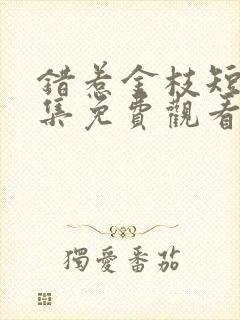 錯惹金枝短
集免費觀看
獨愛番茄